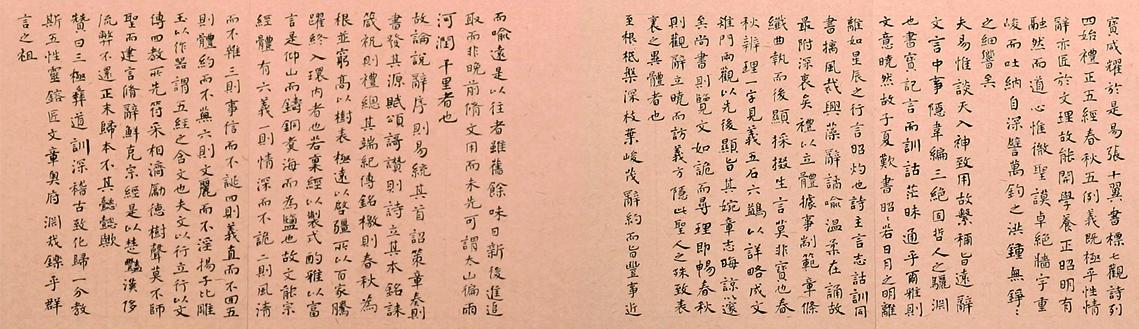 寶咸耀於是易張十翼書標七觀詩列
四始禮正五經春秋五例義既極乎性情
辭亦匠於文理故能開學養正昭明有
融然而道心惟微聖謨卓絕牆宇重
峻而吐納自深譬萬鈞之洪鍾無錚〻
之細響矣
夫易惟談天入神致用故繫稱旨遠辭
文言中事隱韋編三絕固哲人之驪淵
也書實記言而訓詁茫昧通乎爾雅則
文意曉然故子夏歎書昭〻若日月之明離
離如星辰之行言昭灼也詩主言志詁訓同
書摛風裁興藻辭譎喻溫柔在誦故
最附深衷矣禮以立體據事制範章條
纖曲執而後顯採掇生言莫非寶也春
秋辨理一字見義五石六鷁以詳略成文
雉門兩觀以先後顯旨其婉章志晦諒以邃
矣尚書則覽文如詭而尋理即暢春秋
則觀辭立曉而訪義方隱此聖人之殊致表
裏之異體者也
至根柢槃深枝葉峻茂辭約而旨豐事近
而喻遠是以往者雖舊餘味日新後進追
取而非晚前脩文用而未先可謂太山徧雨
河潤千里者也
故論說辭序則易統其首詔策章奏則
書發其源賦頌謌讚則詩立其本銘誄
箴祝則禮總其端紀傳銘檄則春秋為
根並窮高以樹表極遠以啓疆所以百家騰
躍終入環內者也若稟經以製式酌雅以富
言是仰山而鑄銅煮海而為鹽也故文能宗
經體有六義一則情深而不詭二則風清
而不雜三則事信而不誕四則義直而不回五
則體約而不蕪六則文麗而不淫揚子比雕
玉以作器謂五經之含文也夫文以行立行以文
傳四教所先符采相濟勵德樹聲莫不師
聖而建言脩辭鮮克宗經是以楚豔漢侈
流弊不還正末歸本不其懿歟
贊曰三極彝道訓深稽古致化歸一分教
斯五性靈鎔匠文章奧府淵哉鑠乎群
言之祖